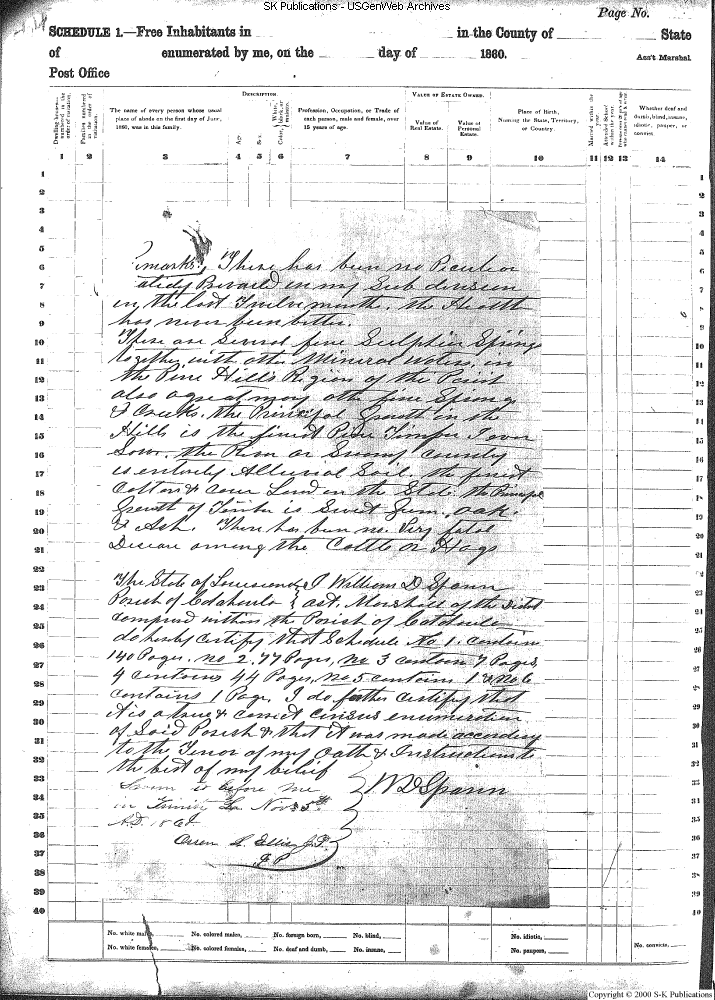 SK Publications - USGenWeb Archives
Page No.
SCHEDULE 1.—Free Inhabitants in in the County of State
of enumerated by me, on the day of 1860. Ass't Marshal.
Post Office
Dwelling-houses numbered in the order of visitation.
Families numbered in the order of visitation.
The name of every person whose usual place of abode on the first day of June, 1860, was in this family.
DESCRIPTION.
Age
Sex
Color, White, black, or mulatto.
Profession, Occupation, or Trade of each person, male and female, over 15 years of age.
VALUE OF ESTATE OWNED.
Value of Real Estate.
Value of Personal Estate.
Place of Birth, Naming the State, Territory, or Country.
Married within the year.
Attended School within the year.
Whether deaf and dumb, blind, insane, idiotic, pauper, or convict.
1 2 3 4 5 6 7 8 9 10 11 12 13 14
marks, There has been no Peculior
in my Sub division
in the last Twelve month. the Health
has never been better.
There are Several fine Sculphin Spring
together with othe Mineral Waters, in
the Pine Hills Region of the Parish
also a great many othe fine Spring
& Creeks. the Principal Growth in the
Hills is the finest Pine Timber I ever
Saw. the River or Swamp County
is entirely Alluvial Soil the finest
Cotton & Corn Land in the State the Principal
Growth of Timber is Sweet Gum, oak
& Ash. There has been no Very fatal
Disease among the Cattle or Hogs
The State of Louisiana } I William D Spann
Parish of Catahoula } ast. Marshall of the Dist
comprised within the Parish of Catahoula
do hereby certify that Schedule No 1. contain
140 Pages. no 2, 77 Pages, no 3 contain 7 Pages,
4 contains 44 Pages, no 5 contains 1 & No 6
contains 1 Page, I do further certify that
it is a true & correct census enumeration
of Said Parish & that it was made according
to the Tenor of my oath & Instructions to
the best of my belief
Sworn to before me W D Spann
in Trinity La Nov
A.D. 186
Ellis J.P.
J P
No. white males, No. colored males, No. foreign born, No. blind, No. idiotic,
No. white females, No. colored females, No. deaf and dumb, No. insane, No. paupers, No. convicts,
Copyright © 2000 S-K Publications